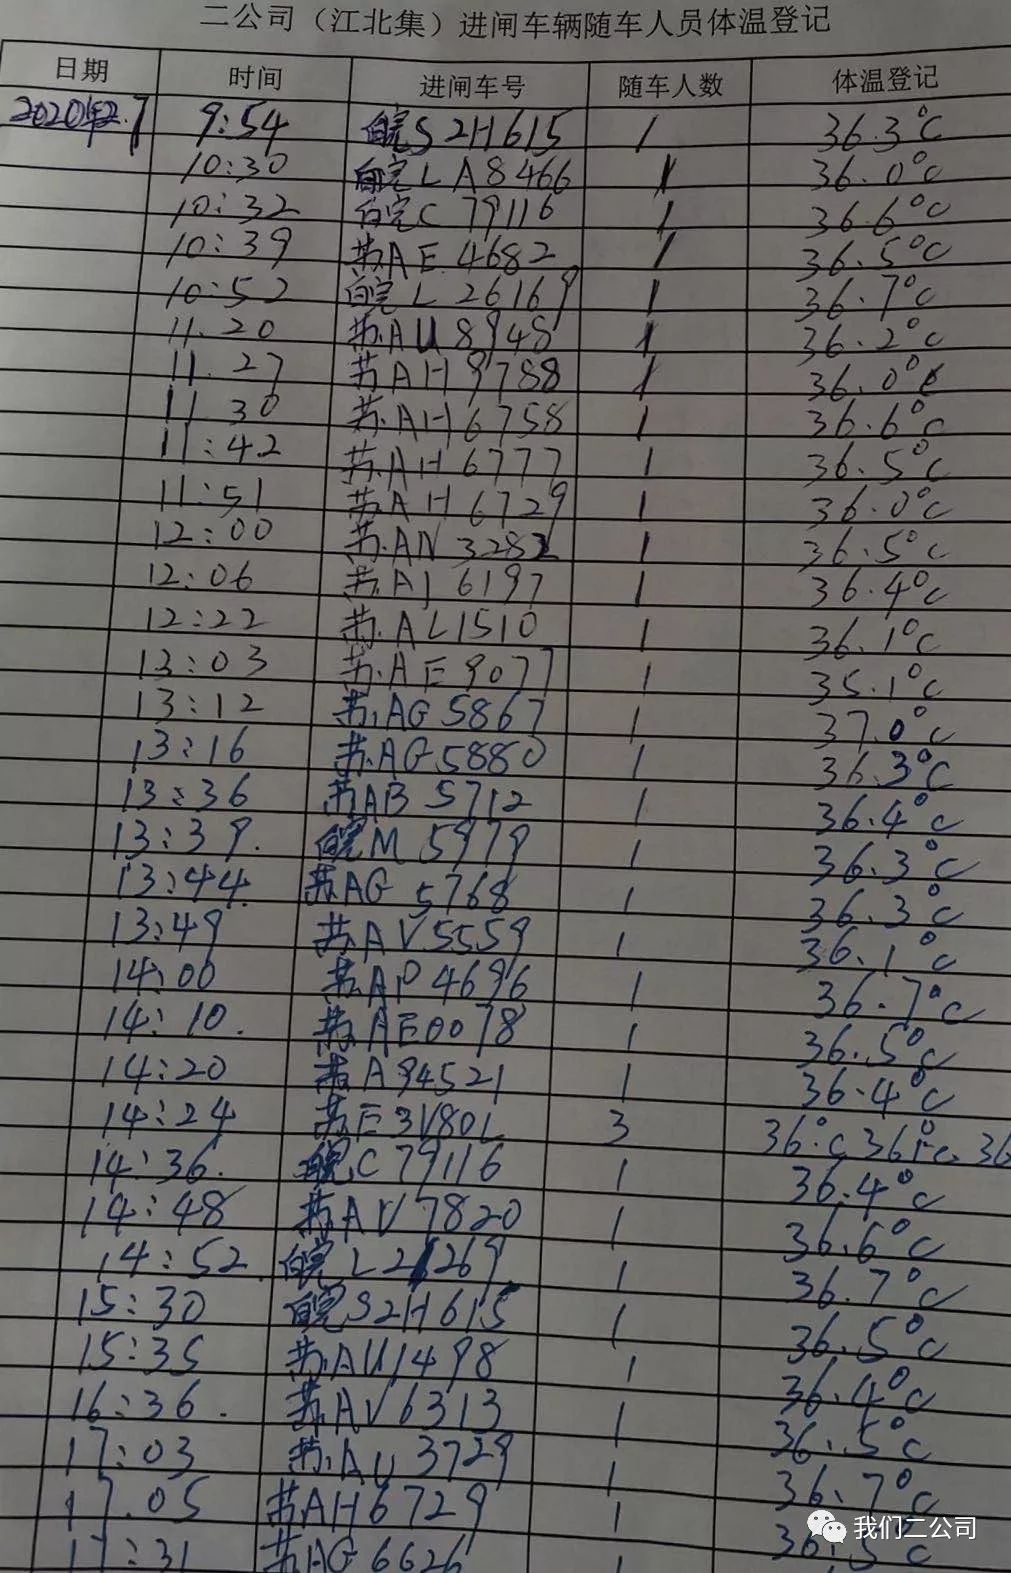 二公司（江北集）进闸车辆随车人员体温登记
日期 时间 进闸车号 随车人数 体温登记
2020年2.7 9:54 皖S2H615 1 36.3°C
10:30 皖LA8466 1 36.0°C
10:32 皖C79116 1 36.6°C
10:39 苏AE4682 1 36.5°C
10:52 皖L26169 1 36.7°C
11.20 苏AU8948 1 36.2°C
11.27 苏AH9788 1 36.0°C
11 30 苏AH6758 1 36.6°C
11:42 苏AH6777 1 36.5°C
11:51 苏AH6729 1 36.0°C
12:00 苏AN3282 1 36.5°C
12:06 苏AJ6197 1 36.4°C
12:22 苏AL1510 1 36.1°C
13:03 苏AE9077 1 35.1°C
13:12 苏AG5867 1 37.0°C
13:16 苏AG5880 1 36.3°C
13:36 苏AB5712 1 36.4°C
13:39. 皖M5979 1 36.3°C
13:44 苏AG5768 1 36.3°C
13:49 苏AV5559 1 36.1°C
14:00 苏AP4696 1 36.7°C
14:10. 苏AE0078 1 36.5°C
14:20 苏A94521 1 36.4°C
14:24 苏E3V80L 3 36°C 361°C 36
14:36. 皖C79116 1 36.4°C
14:48 苏AV7820 1 36.6°C
14:52 皖L21269 1 36.7°C
15:30 皖S2H615 1 36.5°C
15:35 苏AU1498 1 36.4°C
16:36. 苏AV6313 1 36.5°C
17:03 苏AU3729 1 36.7°C
17.05 苏AH6729 1 36.5°C
17:31 苏AG6626 1
我们二公司